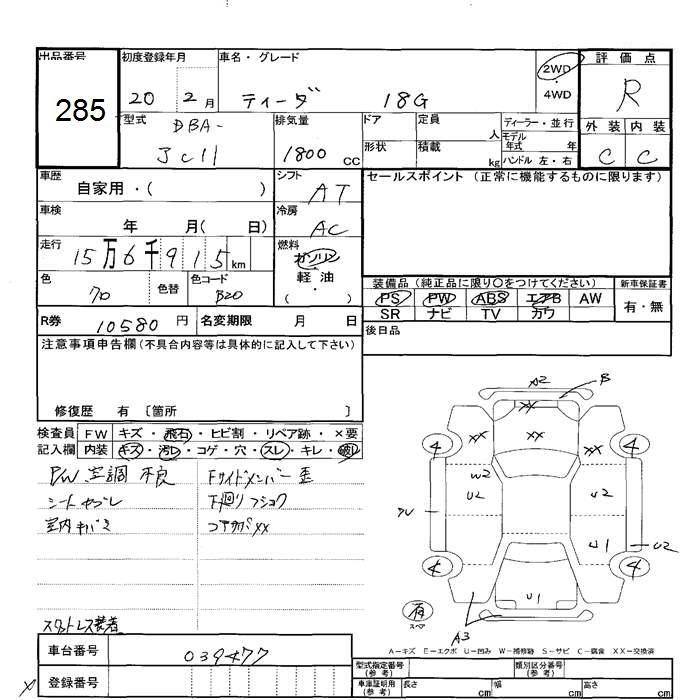 出品番号
285
初度登録年月
20 2月
車名・グレード
ティーダ 18G
2WD
・
4WD
評価点
R
外装 内装
C C
型式
DBA-
JC11
排気量
1800 cc
ドア
定員 人
形状
積載 kg
ディーラー・並行
モデル年式 年
ハンドル 左・右
車歴
自家用・( )
シフト
AT
セールスポイント (正常に機能するものに限ります)
車検
年 月( 日)
冷房
AC
走行
15万6千915km
燃料
ガソリン
・
軽油
・
( )
色
色替
色コード
B20
装備品 (純正品に限り○をつけてください)
PS PW ABS エアB AW
SR ナビ TV カワ
新車保証書
有・無
R券 10580 円
名変期限 月 日
後日品
注意事項申告欄(不具合内容等は具体的に記入して下さい)
修復歴 有 〔箇所 〕
検査員
記入欄
FW キズ・飛石・ヒビ割・リペア跡・×要
内装 キズ・汚レ・コゲ・穴・スレ・キレ・破レ
PW 空調 不良
Fサイドメンバー歪
シートヤブレ
下廻りフショク
コアサポXX
スタットレス装着
A2 B
XX
XX XX XX
4 4
W2
U2 U2
U1 U2
4 4
U1
有
スペア
A3
A-キズ E-エクボ U-凹み W-補修跡 S-サビ C-腐食 XX-交換済
車台番号 039477
登録番号
型式指定番号
(参考)
類別区分番号
(参考)
車庫証明用
(参考)
長さ cm
幅 cm
高さ cm